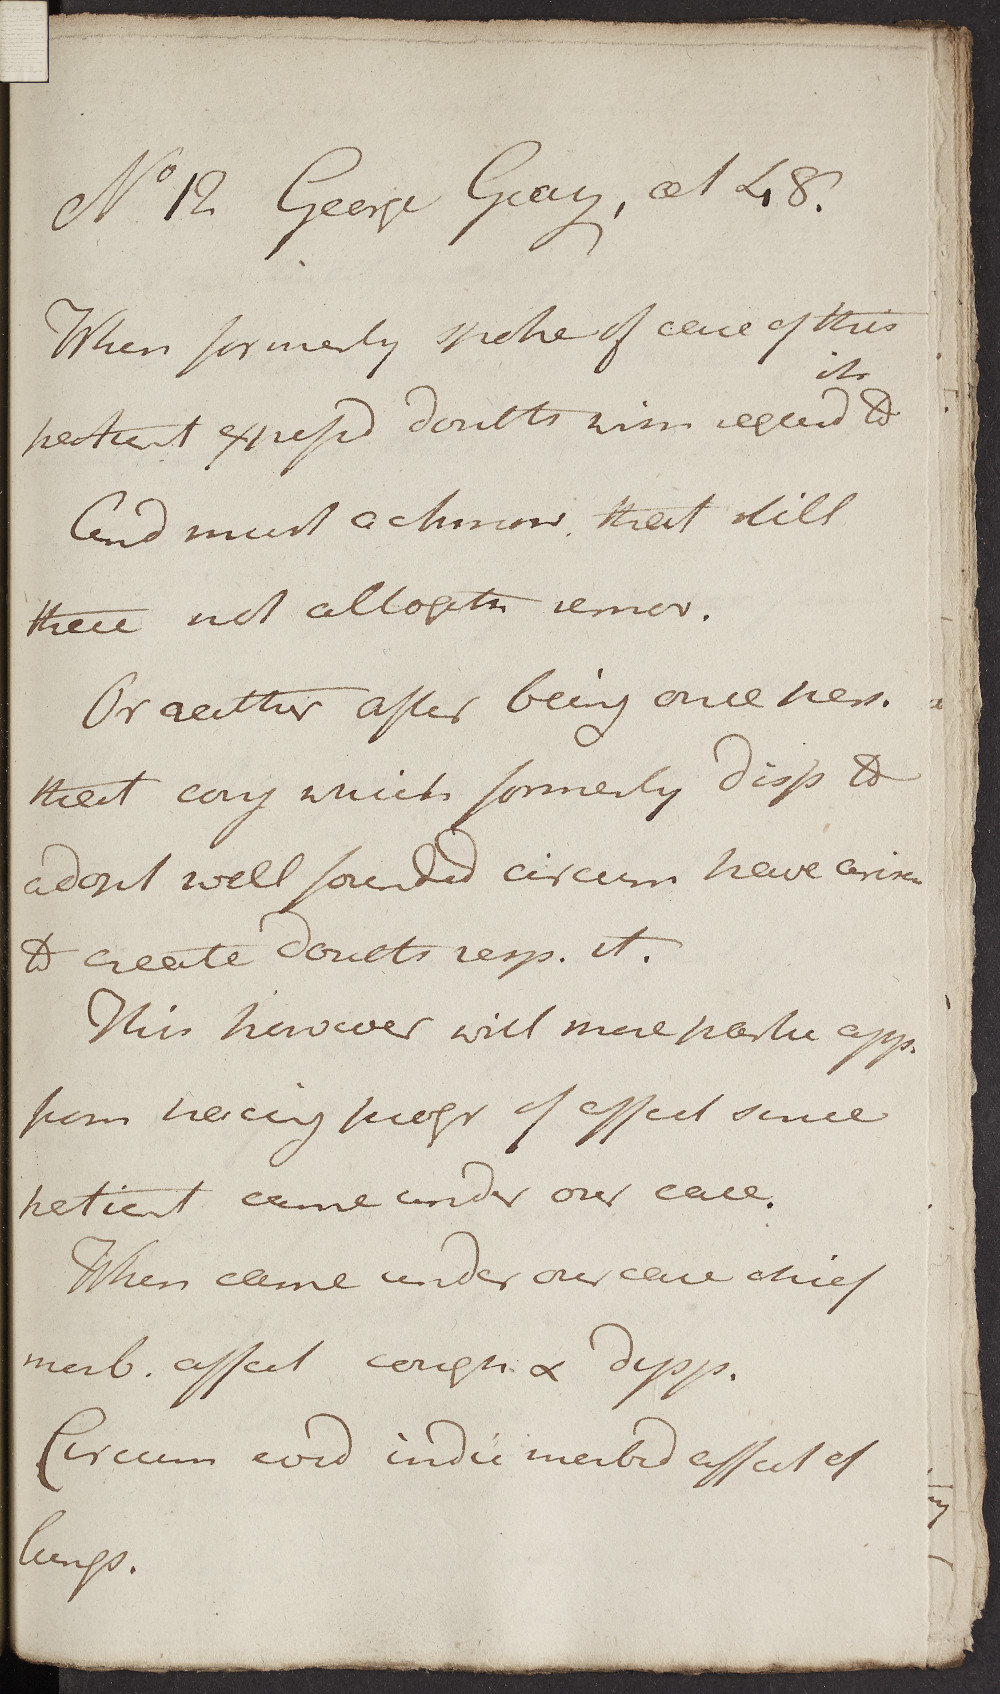 No 12 George Gray, aet 48.
When formerly spoke of case of this
its
patient exprssd doubts with regard to
And must acknow. that still
these not altogeth remov.
Or rather after being once pers.
that conj which formerly disp to
adopt well founded circum have arisen
to create doubts resp. it.
This however will more partic app.
from tracing progr of affect since
patient came under our care.
When came under our care chief
morb. affect cough & dysp.
Circum evid indic morbid affect of
lungs.